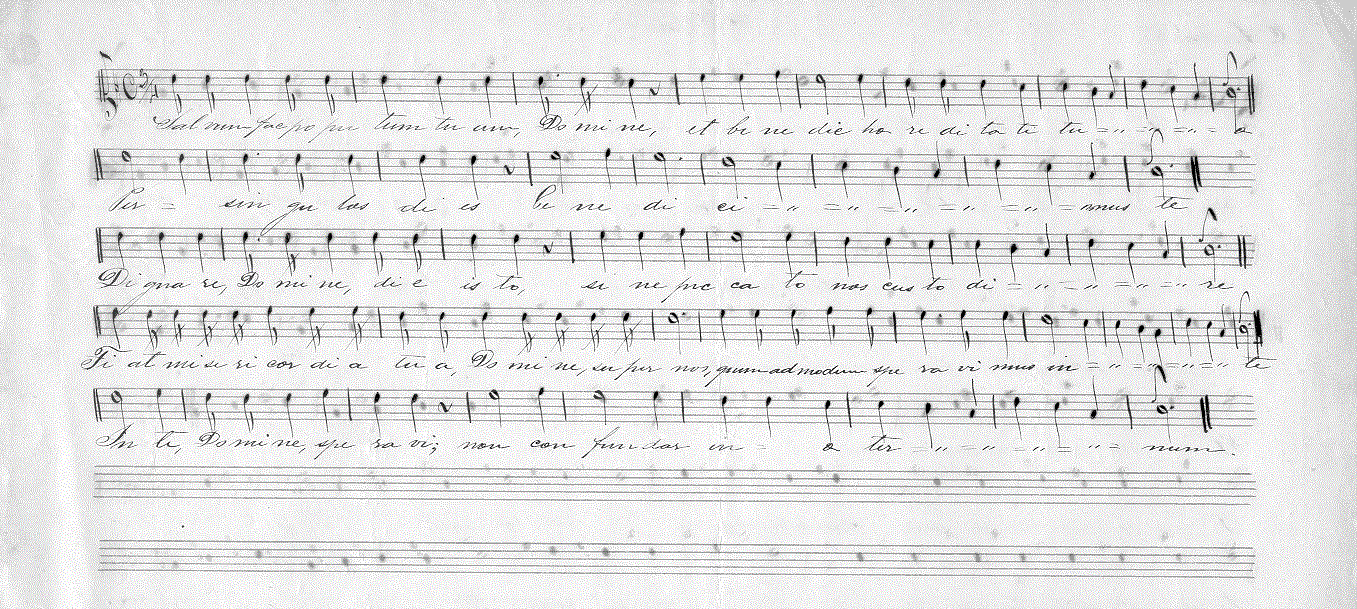 Sal vum fac po pu lum tu um, Do mi ne, et be ne dic hæ re di ta ti tu = „ = „ = „ = æ
Per = sin gu los di es be ne di ci = „ = „ = „ = „ = „ = mus te
Di gna re, Do mi ne, di e is to, si ne pec ca to nos cus to di = „ = „ = „ = re
Fi at mi se ri cor di a tu a, Do mi ne, su per nos, quem ad modum spe ra vi mus in = „ = „ = „ = „ te
In te, Do mi ne, spe ra vi; non con fun dar in = æ ter „ = „ = „ = „ = num.